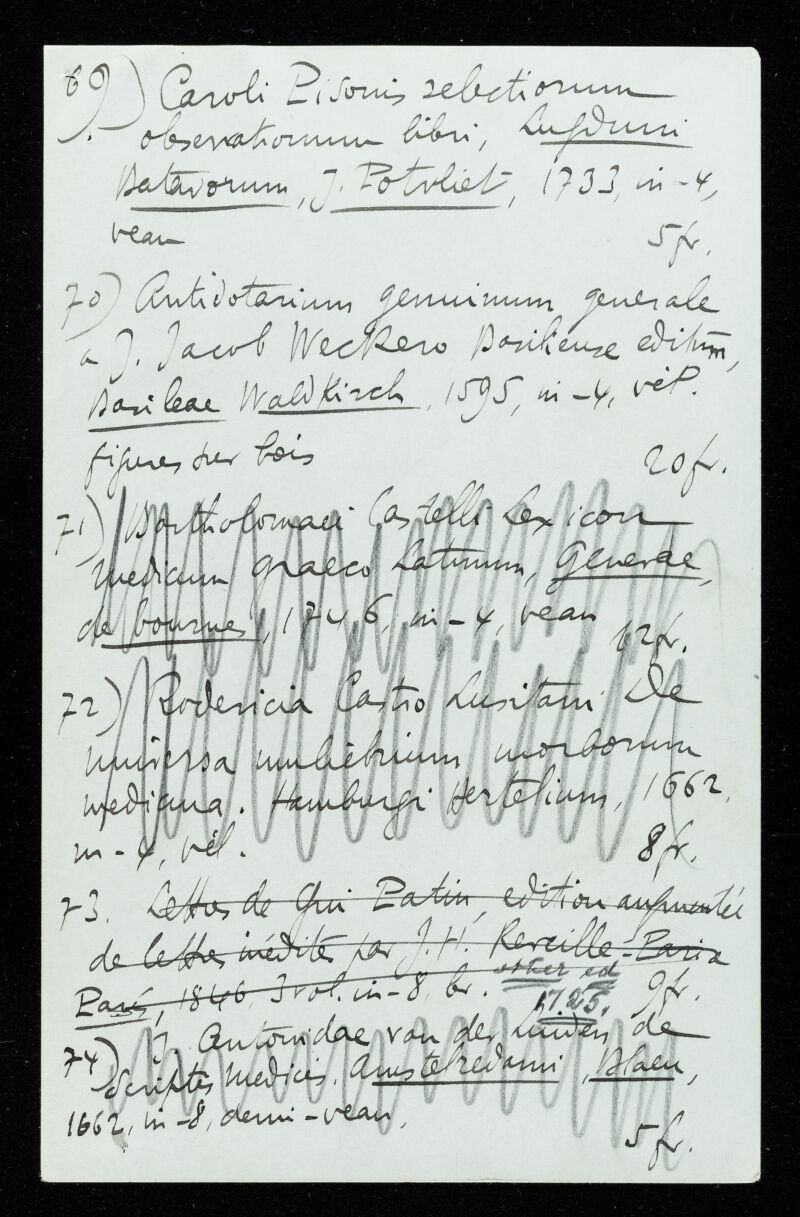 69) Caroli Pisonis selectiorum
observationum libri, Lugduni
Batavorum, J. Potvliet, 1733, in-4,
veau 5 fr.
70) Antidotarium genuinum generale
a J. Jacob Weckero Basiliense editum,
Basileae Waldkirch, 1595, in-4, vél.
figures sur bois 20 fr.
71) Bartholomaei Castelli Lexicon
medicum graeco Latinum, Genevae,
de bournes, 1746, in-4, veau 12 fr.
72) Rodericia Castro Lusitani De
universa muliebrium morborum
medicina. Hamburgi Hertelium, 1662,
in-4, vél. 8 fr.
73. Lettres de Gui Patin, edition augmentée
de lettres inédites par J.H. Reveillé-Paria
Paris, 1846, 3 vol. in-8, br. other ed 9 fr.
1725.
74) J. Antonidae van der Linden de
Scriptis medicis. Amstelredami, Blaeu,
1662, in-8, demi-veau,
5 fr.